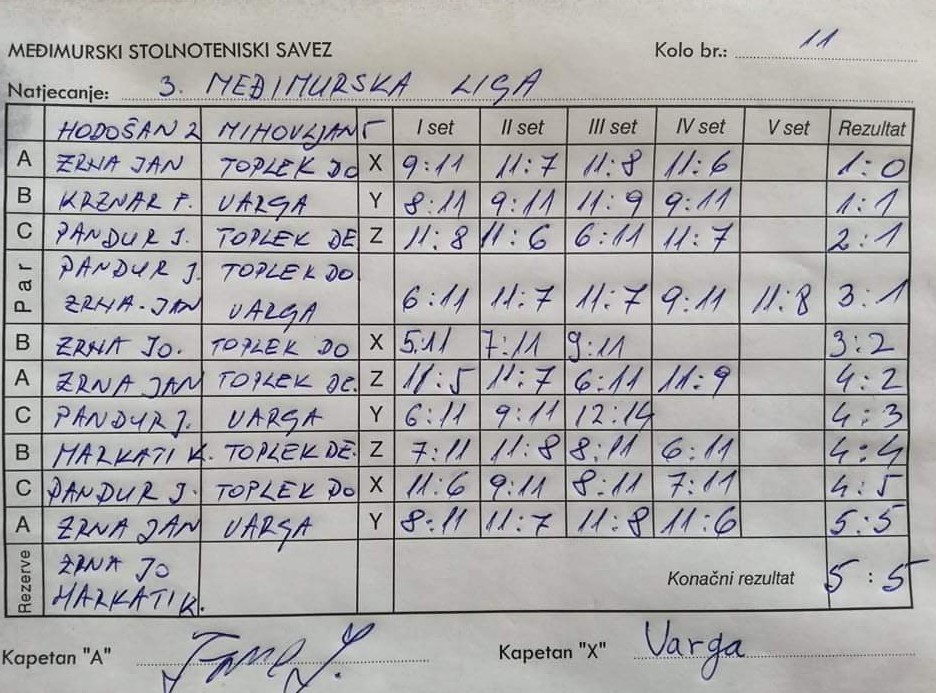 MEĐIMURSKI STOLNOTENISKI SAVEZ Kolo br.: 11
Natjecanje: 3. MEĐIMURSKA LIGA
HODOŠAN 2 MIHOVLJAN 5 I set II set III set IV set V set Rezultat
A ZRNA JAN TOPLEK DO X 9:11 11:7 11:8 11:6 1:0
B KRZNAR F. VARGA Y 8:11 9:11 11:9 9:11 1:1
C PANDUR J. TOPLEK DE Z 11:8 11:6 6:11 11:7 2:1
Par PANDUR J. TOPLEK DO
ZRNA-JAN VARGA 6:11 11:7 11:7 9:11 11:8 3:1
B ZRNA JO. TOPLEK DO X 5:11 7:11 9:11 3:2
A ZRNA JAN TOPLEK DE. Z 11:5 11:7 6:11 11:9 4:2
C PANDUR J. VARGA Y 6:11 9:11 12:14 4:3
B MARKATI K. TOPLEK DE. Z 7:11 11:8 8:11 6:11 4:4
C PANDUR J. TOPLEK DO X 11:6 9:11 8:11 7:11 4:5
A ZRNA JAN VARGA Y 8:11 11:7 11:8 11:6 5:5
Rezerve ZRNA JO
MARKATI K. Konačni rezultat 5:5
Kapetan "A" Kapetan "X" Varga